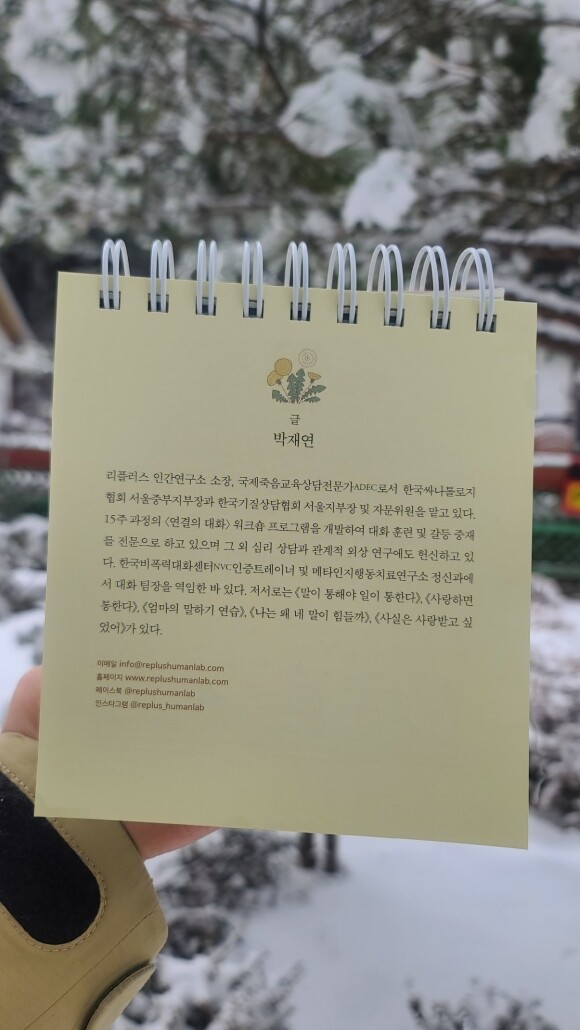 글
박재연
리플러스 인간연구소 소장, 국제죽음교육상담전문가ADEC로서 한국싸나톨로지
협회 서울중부지부장과 한국기질상담협회 서울지부장 및 자문위원을 맡고 있다.
15주 과정의 〈연결의 대화〉 워크숍 프로그램을 개발하여 대화 훈련 및 갈등 중재
를 전문으로 하고 있으며 그 외 심리 상담과 관계적 외상 연구에도 헌신하고 있
다. 한국비폭력대화센터NVC인증트레이너 및 메타인지행동치료연구소 정신과에
서 대화 팀장을 역임한 바 있다. 저서로는 《말이 통해야 일이 통한다》, 《사랑하면
통한다》, 《엄마의 말하기 연습》, 《나는 왜 네 말이 힘들까》, 《사실은 사랑받고 싶
었어》가 있다.
이메일 info@replushumanlab.com
홈페이지 www.replushumanlab.com
페이스북 @replushumanlab
인스타그램 @replus_humanlab